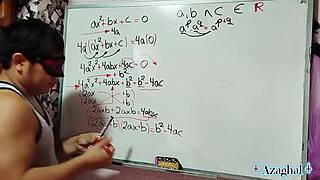 ax²+bx+c=0
4a
4a(ax²+bx+c)=4a(0)
4a²x²+4abx+4ac=0
+b²
4a²x²+4abx+b²=b²-4ac
(2ax +b)
(2ax +b)
2axb+2axb=4abx
(2ax+b)(2ax+b)=b²-4ac
a,b ∧ c ∈ R
aᵖ·a^q=a^(p+q)
Azaghal